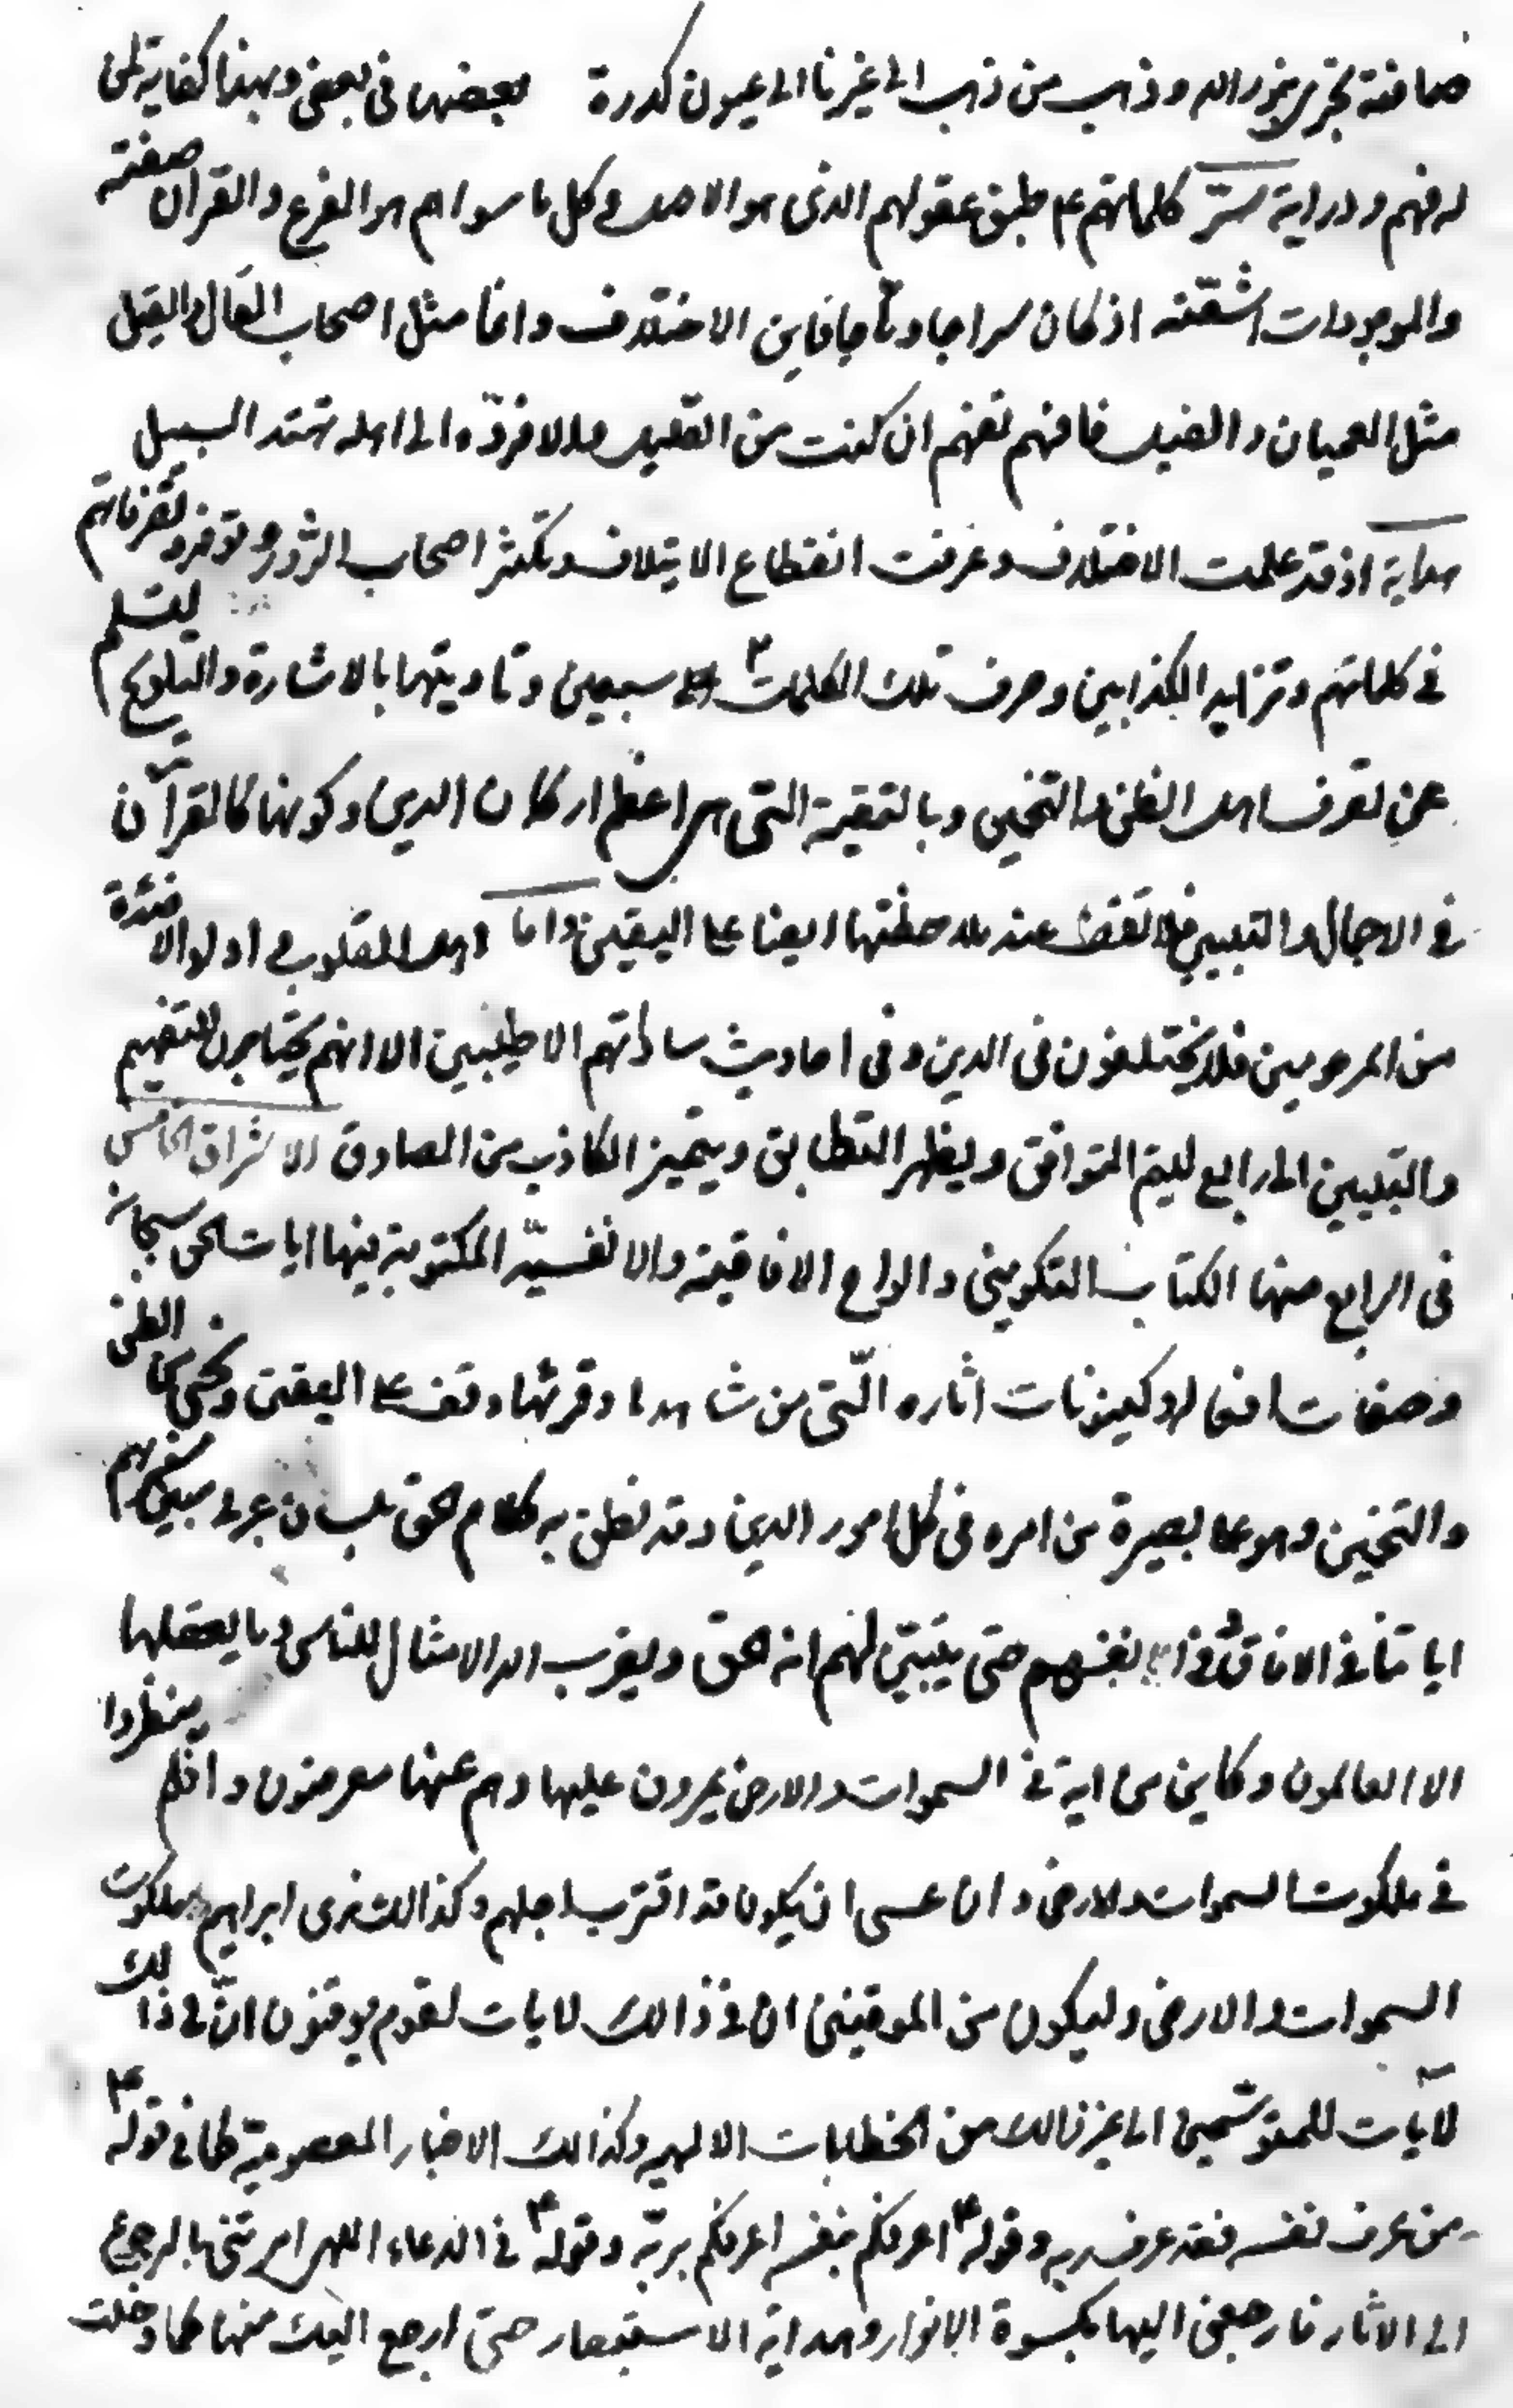 صافية تجرى بنور الله و ذهب من ذهب الى غيرنا الى عيون كدرة بعضها فى بعض و بهذا كفاية لمن
له فهم و دراية ستر كلماتهم ع طبق عقولهم الذى هو الاصل و كل ما سواهم هو الفرع و القران صفته
و الموجودات اشعّته اذ كان سراجا وهاجا فاين الاختلاف و انما مثل اصحاب القال و القيل
مثل العميان و الفيل فافهم تفهم ان كنت من القليل و الا فردّه الى اهله تهتد السبيل
هداية اذ قد علمت الاختلاف و عرفت انقطاع الايتلاف و تكثر اصحاب الزور و توفر تصرفاتهم
فى كلماتهم و تزايد الكذابين و صرف تلك الكلمات الى سبعين و تاديتها بالاشارة و التلويح ليسلم
عن تصرف اهل الظن و التخمين و بالتقية التى هى اعظم اركان الدين و كونها كالقرآن
فى الاجمال و التبيين فلا تقف عند ملاحظتها ايضا على اليقين و اما اهل القلوب و اولو الافئدة
من المرحومين فلا يختلفون فى الدين و فى احاديث ساداتهم الاطيبين الا انهم يحتاجون للتفهيم
و التبيين الى رابع ليتم التوافق و يظهر التطابق و يتميز الكاذب من الصادق الاشراق الخامس
فى الرابع منها الكتاب التكوينى و الالواح الافاقية و الانفسيّة المكتوبة فيها ايات الحق سبحانه
و صفات افعاله و كينونات اثاره الّتى من شاهدها و قرئها وقف على اليقين و نجى من الظن
و التخمين و هو على بصيرة من امره فى كل امور الدين و قد نطق به كلام الحق بلسان عربى مبين سنريهم
اياتنا فى الافاق و فى انفسهم حتى يتبيّن لهم انه الحق و يضرب الله الامثال للناس و ما يعقلها
الا العالمون و كاين من اية فى السموات و الارض يمرون عليها و هم عنها معرضون و افلم ينظروا
فى ملكوت السموات و الارض و ان عسى ان يكون قد اقترب اجلهم و كذالك نرى ابراهيم ملكوت
السموات و الارض و ليكون من الموقنين ان فى ذالك لايات لقوم يوقنون انّ فى ذالك
لآيات للمتوسّمين الى غير ذالك من الخطابات الالهيه و كذالك الاخبار المعصومية كما فى قوله ع
من عرف نفسه فقد عرف ربه و قوله ع اعرفكم بنفسه اعرفكم بربّه و قوله ع فى الدعاء اللهى امرتنى بالرجوع
الى الاثار فارجعنى اليها بكسوة الانوار و هداية الاستبصار حتى ارجع اليك منها كما دخلت